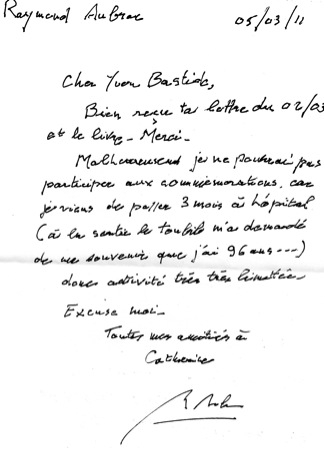 Raymond Aubrac 05/03/11
Cher Yvon Bastide,
Bien reçu ta lettre du 02/03
et le livre - Merci -
Malheureusent je ne pourrai pas
participer aux commémorations, car
je viens de passer 3 mois à hôpital
(à la sortie le toubib m'a demandé
de me souvenir que j'ai 96 ans ---)
donc activité très très limitée -
Excuse moi -
Toutes mes amitiés à
Catherine